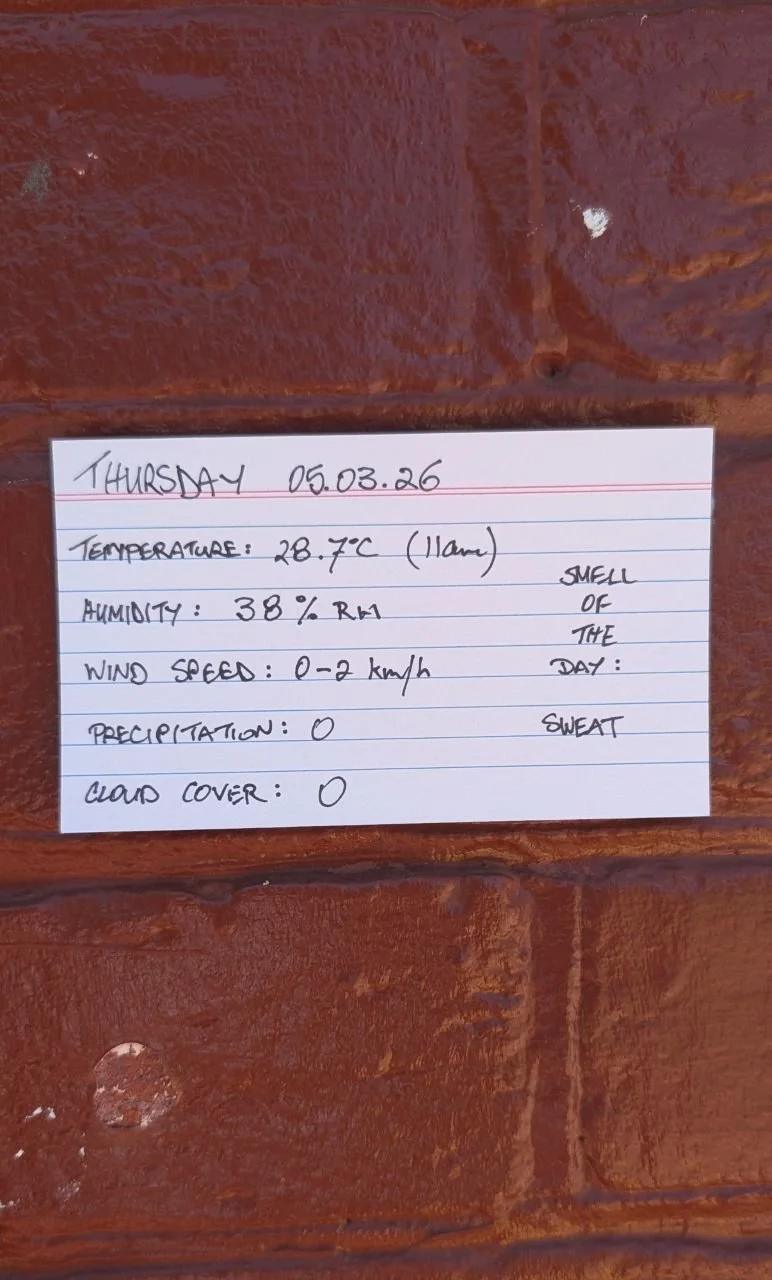 THURSDAY 05.03.26
TEMPERATURE: 28.7°C (11am)
HUMIDITY: 38% RH
WIND SPEED: 0-2 km/h
PRECIPITATION: 0
CLOUD COVER: 0
SMELL
OF
THE
DAY:
SWEAT